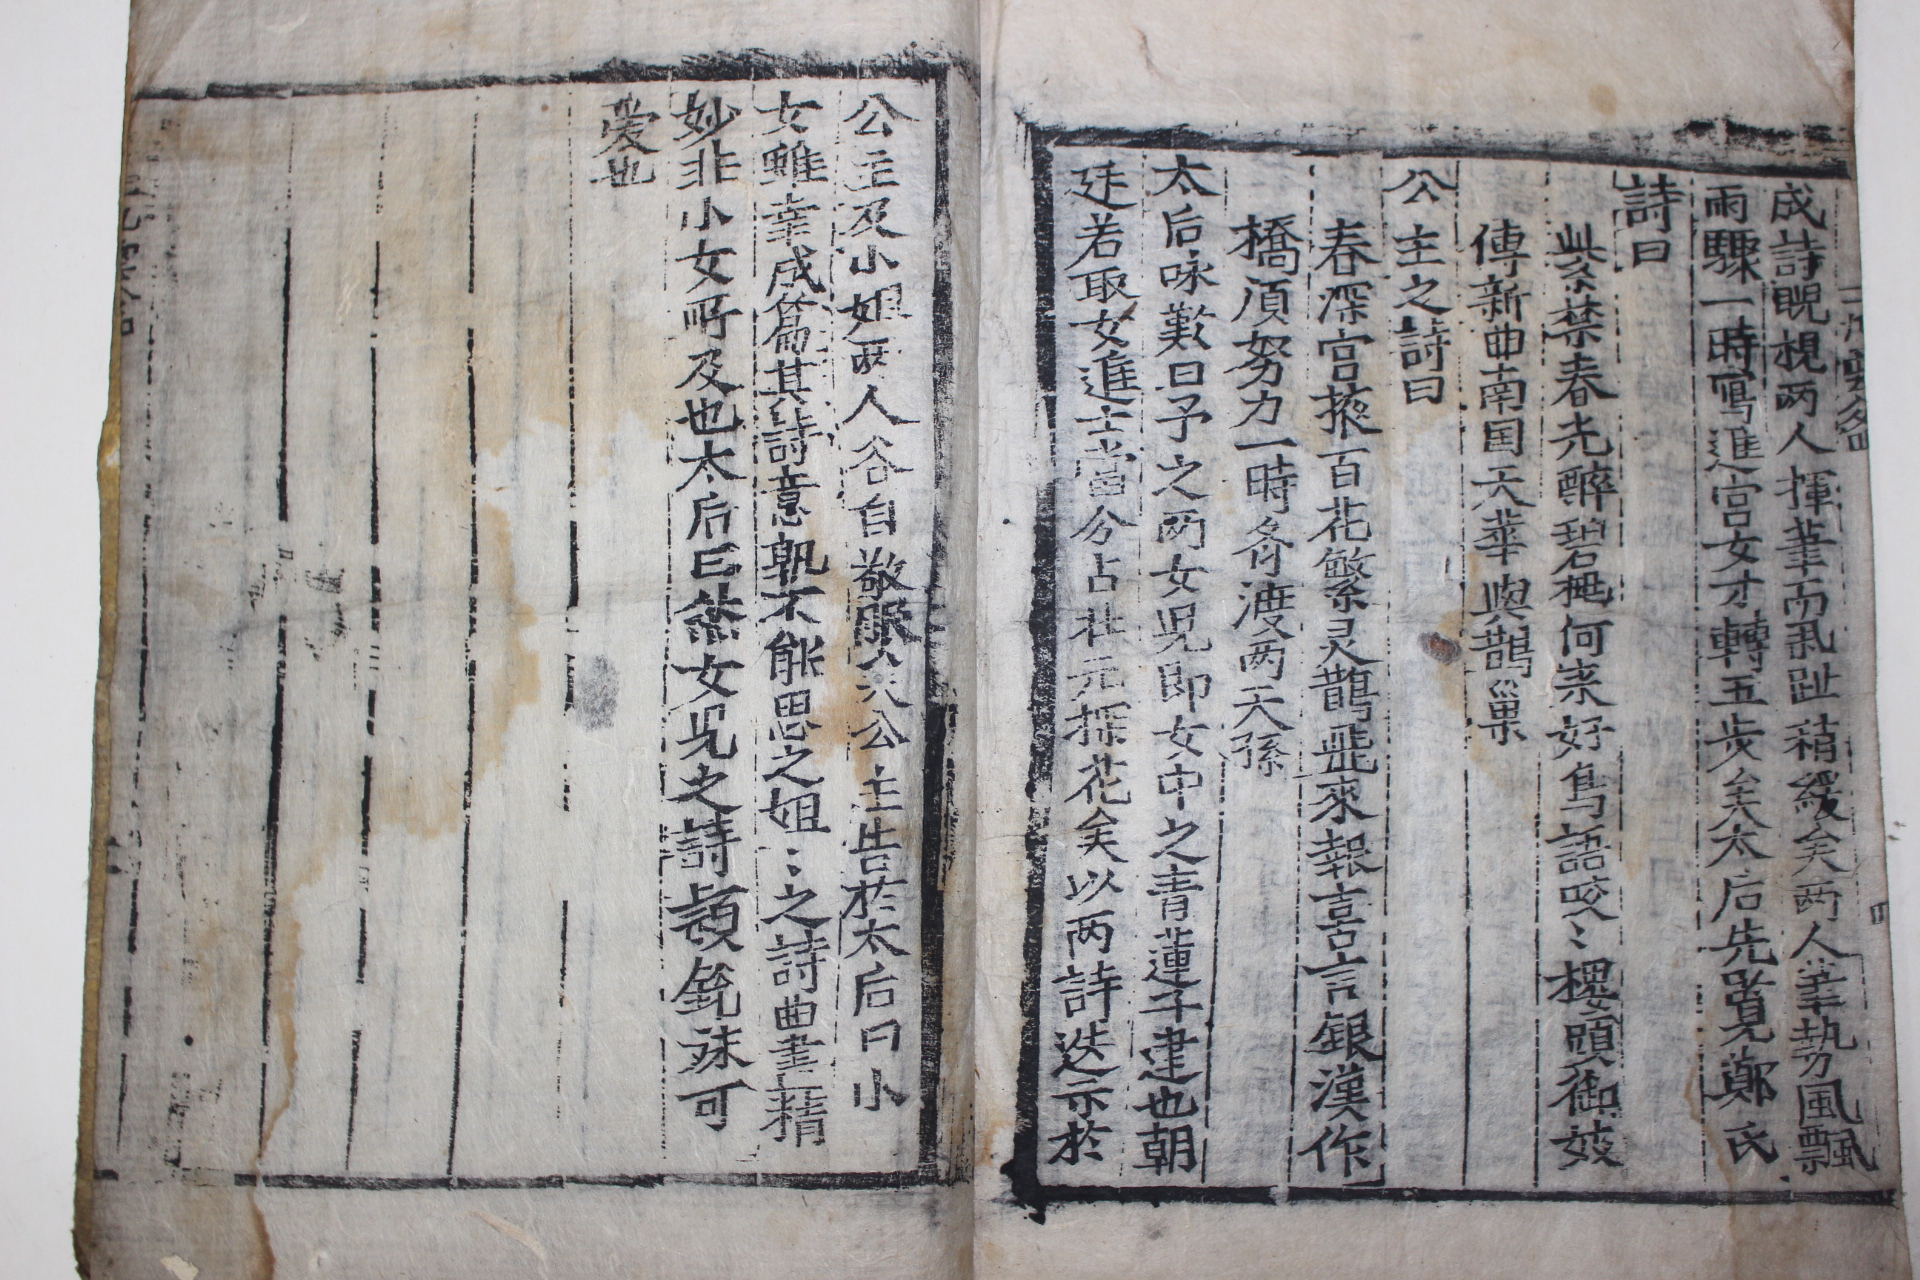 成詩睨視两人揮筆而風趾稍緩矣两人筆勢風飄
雨驟一時寫進宮女才轉五步矣太后先覽鄭氏
詩曰
紫禁春光醉碧桃何来好鳥語咬〻樓頭御妓
傳新曲南国天華與鵲巢
公主之詩曰
春深宮掖百花繁灵鵲飛來報喜言銀漢作
橋須努力一時齊渡两天孫
太后咏歎曰予之两女児即女中之青蓮子建也朝
廷若取女進士當分占壮元探花矣以两詩迭示於
公主及小姐两人各自敬服公主告於太后曰小
女雖幸成篇其詩意孰不能思之姐〻之詩曲盡精
妙非小女所及也太后曰然女児之詩頴銳殊可
愛也